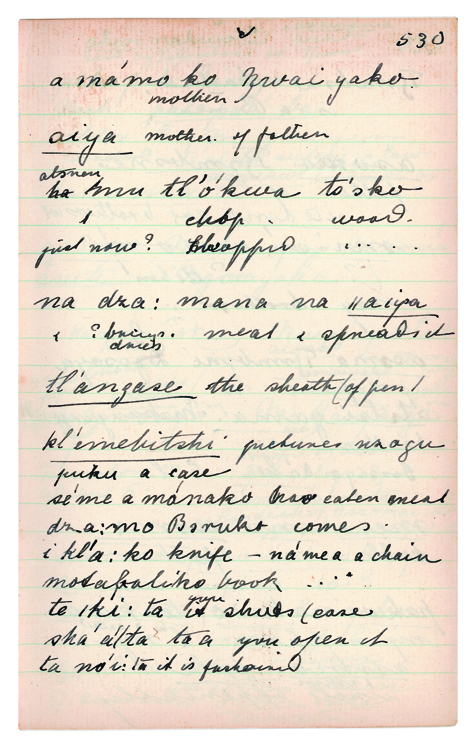 530
a mámo ko Nwai yako
mother
aiya mother of father
tl'ókwa to'sko
I chop . wood.
just now? chopped .....
na dza: mana na ǁaiya
& ? brings. meat & spreads it
dries
tl'angase the sheath (of pen)
kl'emebitshi pictures nnagu
puku a case
séme a mánako have eaten meat
dza:mo Bsruko comes
i kl'a:ko knife – námea a chain
motabaliko book ....
te iki: ta you shuts (case
shá'á/ta ta a you open it
ta no'i: ta it is fastened